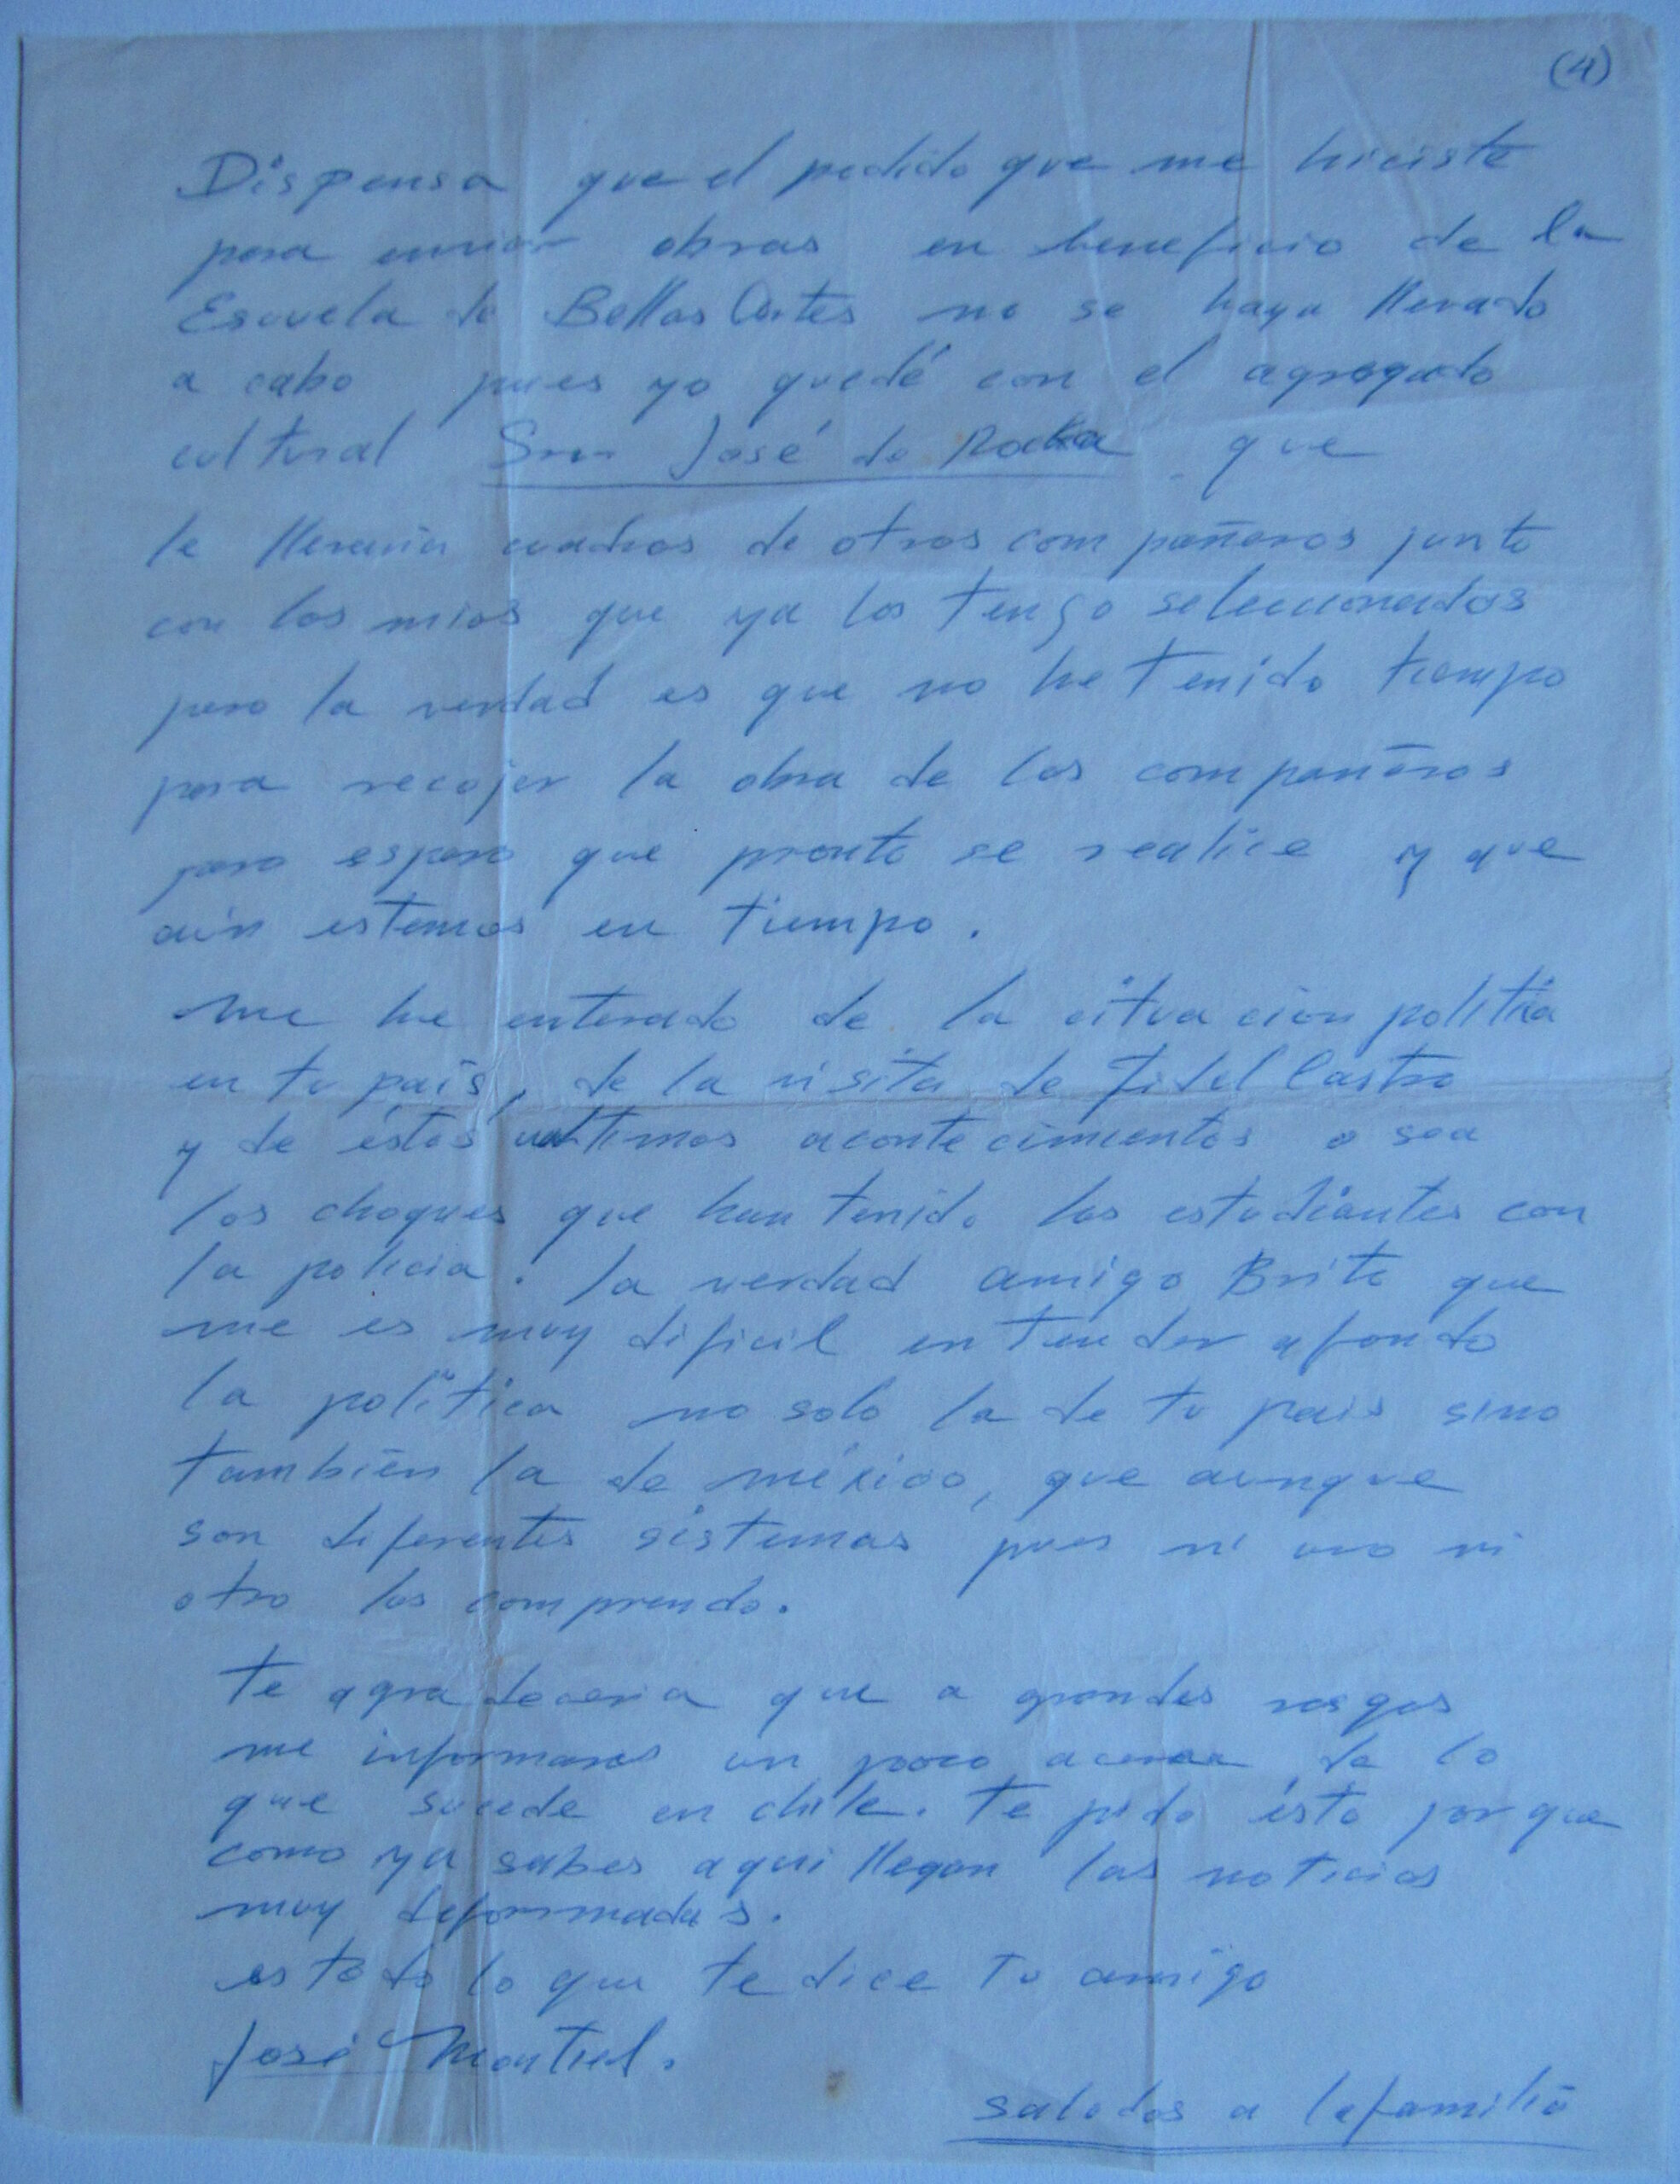 (4)
Dispensa que el pedido que me hiciste
para enviar obras en beneficio de la
Escuela de Bellas Artes no se haya llevado
a cabo pues yo quedé con el agregado
cultural Snr José de Rokha que
le llevaria cuadros de otros compañeros junto
con los mios que ya los tengo seleccionados
pero la verdad es que no he tenido tiempo
para recojer la obra de los compañeros
pero espero que pronto se realice y que
aún estemos en tiempo.
me he enterado de la situación politica
en tu país, de la visita de Fidel Castro
y de éstos ultimos acontecimientos o sea
los choques que han tenido los estudiantes con
la policia. la verdad amigo Brito que
me es muy dificil entender afondo
la política no solo la de tu pais sino
también la de méxico, que aunque
son diferentes sistemas pues ni uno ni
otro los comprendo.
te agradeceria que a grandes rasgos
me informaras un poco acerca de lo
que sucede en chile. te pido ésto porque
como ya sabes aqui llegan las noticias
muy deformadas.
es todo lo que te dice tu amigo
José Montiel.
saludos a la familia